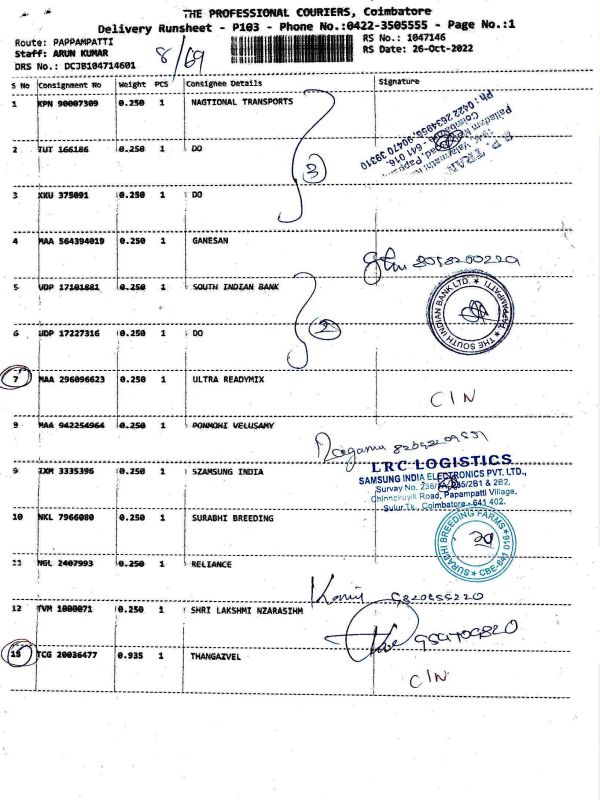 THE PROFESSIONAL COURIERS, Coimbatore
Delivery Runsheet - P103 - Phone No.:0422-3505555 - Page No.:1
Route: PAPPAMPATTI
RS No.: 1047146
Staff: ARUN KUMAR
8/69
RS Date: 26-Oct-2022
DRS No.: DCJB104714601
S No Consignment No Weight PCS Consignee Details Signature
1 KPN 90007309 0.250 1 NAGTIONAL TRANSPORTS
2 TUT 166186 0.250 1 DO
3
3 KKU 375091 0.250 1 DO
4 MAA 564394019 0.250 1 GANESAN
5 UDP 17101881 0.250 1 SOUTH INDIAN BANK
THE SOUTH INDIAN BANK LTD. PAPPAMPATTI
6 UDP 17227316 0.250 1 DO
2
7 MAA 296096623 0.250 1 ULTRA READYMIX
C I N
8 MAA 942254964 0.250 1 PONMOHI VELUSAMY
LRC LOGISTICS
9 IXM 3335396 0.250 1 SZAMSUNG INDIA
SAMSUNG INDIA ELECTRONICS PVT. LTD.,
Chinnakuyili Road, Papampatti Village,
Sulur Tk., Coimbatore - 641 402.
10 NKL 7966080 0.250 1 SURABHI BREEDING
SURABHI BREEDING FARMS
11 NGL 2407993 0.250 1 RELIANCE
12 TVM 1000071 0.250 1 SHRI LAKSHMI NZARASIHM
13 TCG 20036477 0.935 1 THANGAZVEL
C I N